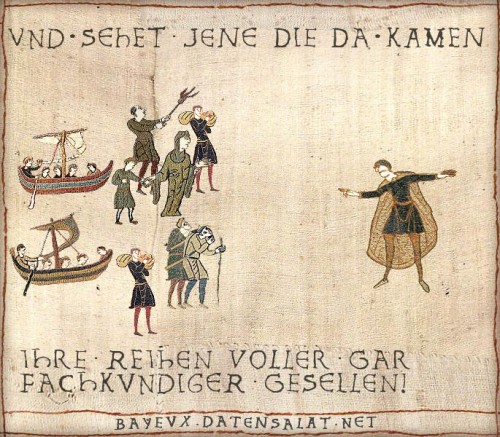 VND · SEHET · JENE DIE DA · KAMEN
IHRE · REIHEN VOLLER · GAR
FACHKVNDIGER · GESELLEN!
BAYEVX.DATENSALAT.NET